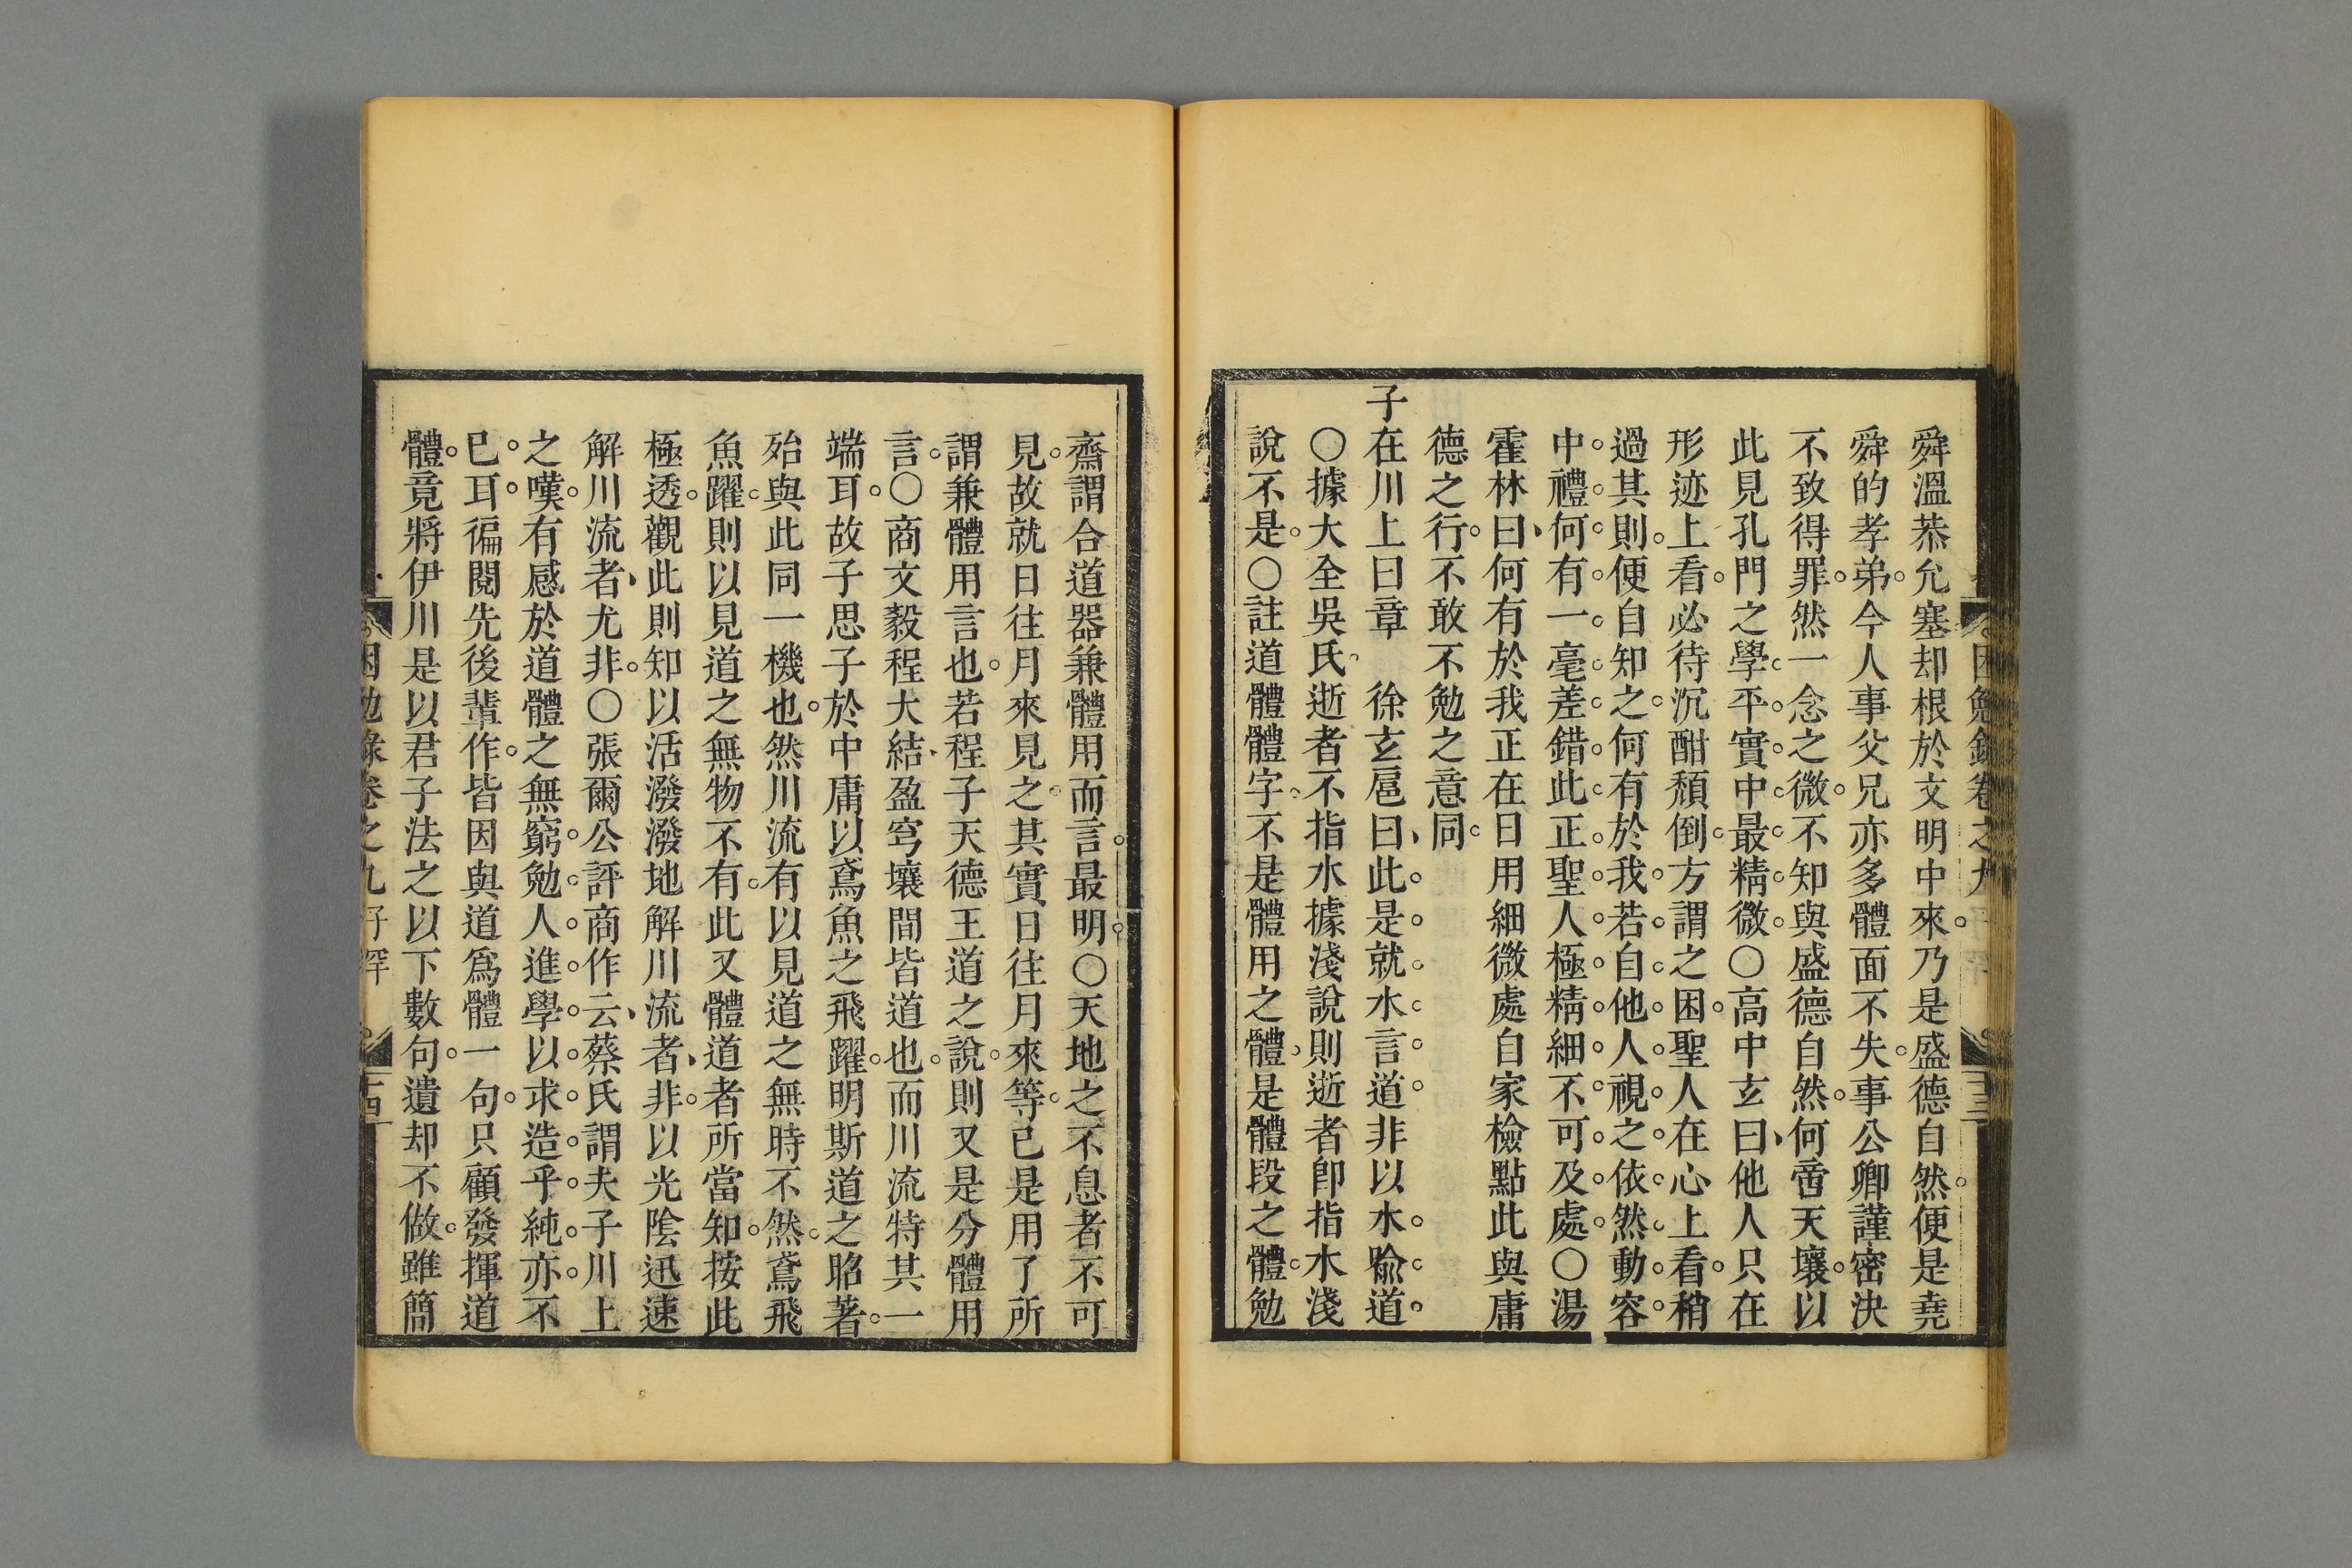 困勉錄卷之九
舜溫恭允塞却根於文明中來乃是盛德自然便是堯
舜的孝弟今人事父兄亦多體面不失事公卿謹密決
不致得罪然一念之微不知與盛德自然何啻天壤以
此見孔門之學平實中最精微○高中玄曰他人只在
形迹上看必待沉酣頹倒方謂之困聖人在心上看稍
過其則便自知之何有於我若自他人視之依然動容
中禮何有一毫差錯此正聖人極精細不可及處○湯
霍林曰何有於我正在日用細微處自家檢點此與庸
德之行不敢不勉之意同
子在川上曰章　徐玄扈曰此是就水言道非以水喩道
○據大全吳氏逝者不指水據淺說則逝者卽指水淺
說不是○註道體體字不是體用之體是體段之體勉
齋謂合道器兼體用而言最明○天地之不息者不可
見故就日往月來見之其實日往月來等已是用了所
謂兼體用言也若程子天德王道之說則又是分體用
言○商文毅程大結盈穹壤間皆道也而川流特其一
端耳故子思子於中庸以鳶魚之飛躍明斯道之昭著
殆與此同一機也然川流有以見道之無時不然鳶飛
魚躍則以見道之無物不有此又體道者所當知按此
極透觀此則知以活潑潑地解川流者非以光陰迅速
解川流者尤非○張爾公評商作云蔡氏謂夫子川上
之嘆有感於道體之無窮勉人進學以求造乎純亦不
已耳徧閱先後輩作皆因與道爲體一句只顧發揮道
體竟將伊川是以君子法之以下數句遺却不做雖簡
困勉錄卷之九